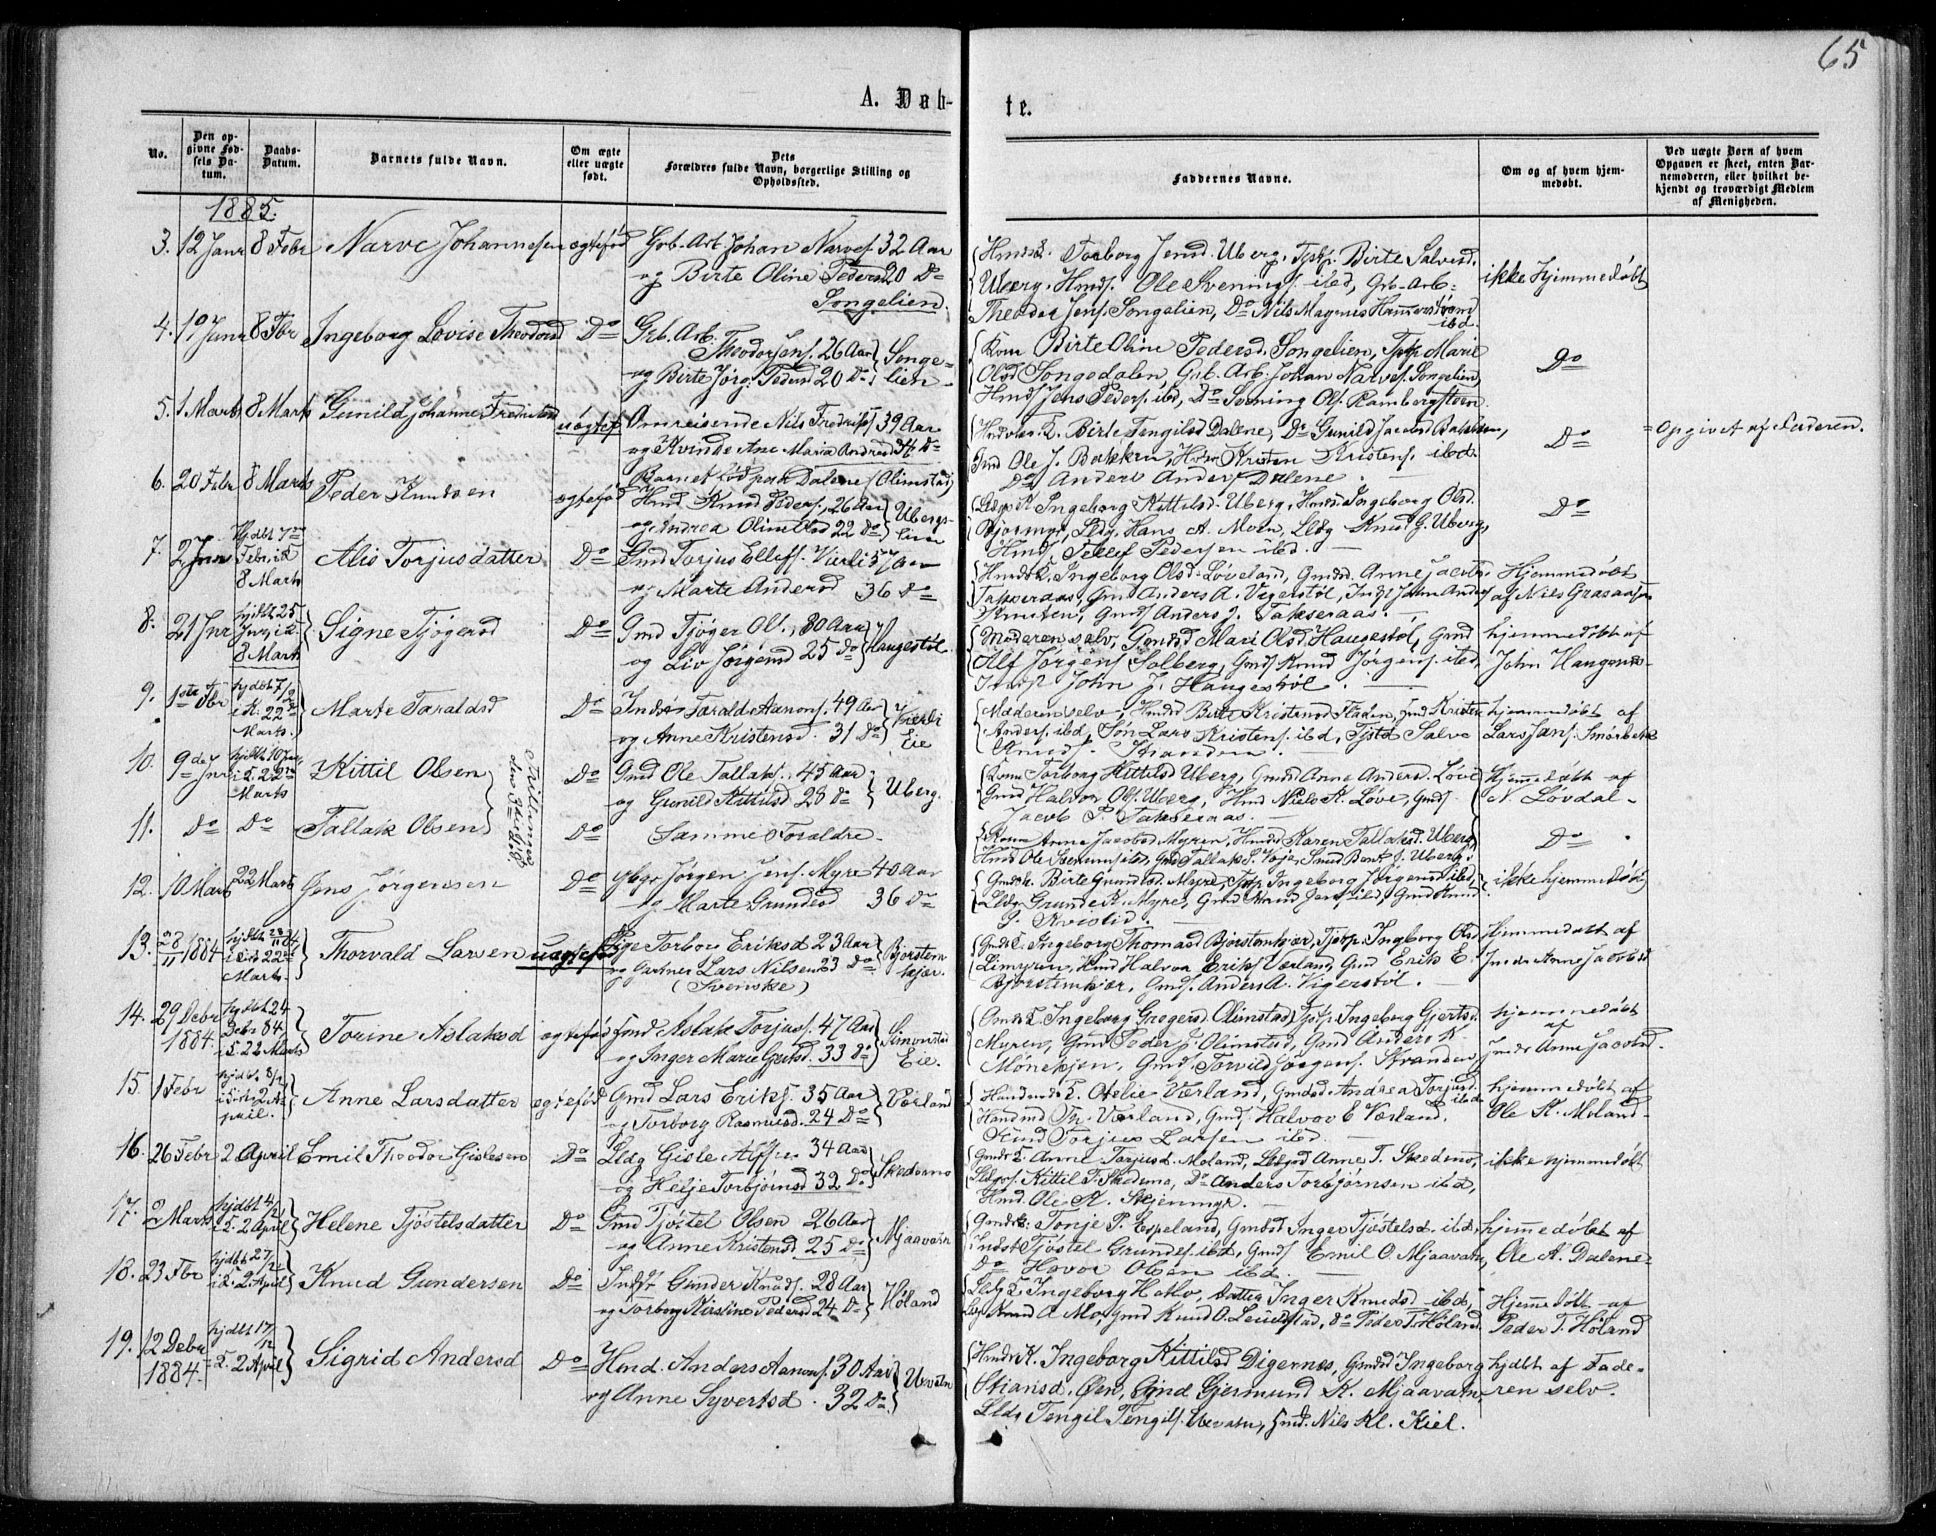 65
A. Døb-
te.
No.
Den opgivne Fødsels Datum.
Daabs-Datum.
Barnets fulde Navn.
Om ægte eller uægte født.
Dets Forældres fulde Navn, borgerlige Stilling og Opholdssted.
Faddernes Navne.
Om og af hvem hjemmedøbt.
Ved uægte Børn af hvem Opgaven er skeet, enten Barnemoderen, eller hvilket bekjendt og troværdigt Medlem af Menigheden.
1885.
3. 12 Janr 8 Febr Narve Johannesen ægtefød Grb. Arb. Johan Narves. 32 Aar
og Birte Oline Pedersd 20 Do
Songelien.
Torborg Jensd. Uberg, Tjstp. Birte Salvesd.
Uberg, Hmds. Ole Svenings. ibd, Grb. Arb.
Theodor Jens. Songelien, Do Nils Magnus Hammerstrøm
ibd.
ikke hjemmedøbt
4. 19 Janr 8 Fbr Ingeborg Lovise Theodorsd Do Grb. Arb.
Theodor Jens. 26 Aar
og Birte Jørg. Pedersd 20 Do
Songelien
Kone Birte Oline Pedersd. Songelien, Tjstp Marie
Olsd Songedalen, Grb. Arb. Johan Narves. Songelien,
Hmd Jens Peders. ibd, Do Svening Ols. Rambergsteen
Do
5. 1 Marts 8 Marts Gunild Johanne Fredriksd uægtef. Omreisende Nils Fredriks. 39 Aar
og Kvinde Ane Maria Andersd 34 Do
Barnet født paa Dalene (Olimstad)
Birte Tengilsd Dalene, Do Gunild Jacobsd Bakken,
Gmd Ole J. Bakken, Kristen Kristens. ibd.
Do Anders Anders. Dalene.
Do
Opgivet af Faderen.
6. 20 Febr 8 Marts Peder Knudsen ægtefød Hmd. Knud Peders., 26 Aar
og Andrea Olimsd 22 Do
Ubergslien
Ingeborg Kittilsd. Uberg, Ingeborg Olsd.
Bjormyr, Ldg. Hans A. Moen, Ldg Knud G. Uberg,
Hmd. Tellef Pedersen ibd.
Do
7. 2 Janr hjdbt 7de
Febr, i K
8 Marts
Alis Torjusdatter Do Gmd Torjus Ellefs. Vierli 57 Aar
og Marte Andersd 36 Do
Ingeborg Olsd. Løveland, Gmdsd. Anne Jacobsd.
Takseraas, Gmd Anders A. Vigerstøl, John Anders
Gmds Anders J. Takseraas.
Hjemmedøbt
af Nils Grasaasen
8. 21 Jnr hjdbt 25
Jnr, i K.
8 Marts
Signe Tjøgersd Do Gmd Tjøger Ols., 30 Aar
og Liv Jørgensd 25 Do
Haugestøl.
Moderen selv, Gmdsd Mari Olsd. Haugestøl, Gmd
Alf Jørgens. Solberg, Gmds Knud Jørgens. ibd,
John J. Haugestøl.
hjemmedøbt af
John Haugenes-
9. 1ste Fbr hjdbt 7/2
i K. 22de
Marts.
Marte Taraldsd Do Inds. Tarald Aanons. 49 Aar
og Anne Kristensd. 31 Do
Vierli
Eie
Moderen selv, Hmds Birte Kristensd. Staden, Gmd Kristen
Anders. ibd, Søn Lars Kristens. ibd, Tjstd Salve
Knuds. Stranden.
hjemmedøbt af
Lars Jans. Smørbæk
10. 9de Jnr hjdbt 10 Janr,
i K. 22de
Marts
Kittil Olsen Do Gmd Ole Tallaks. 45 Aar
og Gunild Kittilsd 28 Do
Uberg.
Tvillinger
den 9de Kl. 8.
Kone Torborg Kittilsd Uberg, Gmds Anne Andersd. Løve
Gmd Halvor Ols. Uberg, Hmd Niels K. Løve, Gmds.
Jacob P. Takseraas.
Hjemmedøbt af
N. Løvdal.
11. Do Do Tallak Olsen Do Samme Forældre.
Kone Anne Jacobsd Myren, Hmds Karen Tallaksd. Uberg,
Hmd Ole Svenum ibd, Gmd Tallak S. Voje, Smed Bent J. Uberg.
Do
12. 10 Marts 22 Marts Jens Jørgensen Do Jørgen Jens. Myre 40 Aar
og Marte Grundesd 36 Do
Gmdsk. Birte Grundesd. Myre, Tjstp Ingeborg Jørgensd ibd,
Ldg. Grunde K. Myre, Gmd Knud Jens. ibd, Gmd Knud
G. Kvistid.
ikke hjemmedøbt
13. 28/11 1884 hjdbt 28/11 84
i K. 22de
Marts.
Thorvald Larsen uægtefød Pige Torbor Eriksd 23 Aar
og Gartner Lars Nilsen 23 Do
(Svenske)
Bjorstemkjær.
Gmds K. Ingeborg Thomasd Bjorstemkjær, Tjstp. Ingeborg Olsd
Limyren, Hmd Halvor Eriks. Værland, Gmd Erik E.
Bjorstemkjær, Gmds. Anders A. Vigerstøl.
Hjemmedøbt af
Anne Jacobsd
14. 29 Debr
1884.
hjdbt 24
Debr 84.
i K. 22 Marts
Torine Aslaksd ægtefød Gmd Aslak Torjus. 47 Aar
og Inger Marie Gjertsd. 33 Do
Simonstad
Eie.
Ingeborg Gregersd Olimstad, Tjstp. Ingeborg Gjertsd.
Myren, Gmd Peder J. Olimstad, Gmd Anders K.
Mønekjen, Gmd. Torvild Jørgens. Stranden
hjemmedøbt
af
Anne Jacobsd.
15. 1 Febr hjdbt. 8/2,
i K. 2 April.
Anne Larsdatter ægtefød Gmd Lars Eriks. 35 Aar
og Torborg Rasmusd. 24 Do
Værland
Otelie Værland, Gmdsd. Andrea Torjusd.
ibd
Th. Værland, Gmd. Halvor E Værland.
Gmd Torjus Larsen ibd.
hjemmedøbt af
Ole K. Moland.
16. 26 Febr 2 April Emil Theodor Gislesen Do Ldg Gisle Alfsen 34 Aar
og Helje Torbjørnsd 32 Do
Skedsmo
Anne Torjusd. Moland, Anne T. Skedsmo,
Kittil T. Skedsmo, Do Anders Torbjørnsen ibd,
Hmd. Ole A. Skjenmyr.
ikke hjemmedøbt
17. 2 Marts hjdbt 4/3
i K. 2 April
Helene Tjøstelsdatter Do Gmd Tjøstel Olsen 26 Aar
og Anne Kristensd 25 Do
Mjaavatn
Gmdsk: Tonje P. Espeland, Gmdsd Inger Tjøstelsd. ibd.
Indst Tjøstel Grundes. ibd, Gmds Emil O. Mjaavatn,
Do Havor Olsen ibd.
hjemmedøbt af
Ole A. Dalene.
18. 23 Fbr hjdbt 27/2
i K. 2 April
Knud Gundersen Do Indst Gunder Knuds. 28 Aar
og Torborg Kirstine Pedersd 24 Do
Høland
Ldg K. Ingeborg Hatlv, Datter Inger Knudsd ibd,
Ldg Knud A Mo, Gmd Knud O. Leivestad, Do Peder T. Høland.
Hjemmedøbt af
Peder T. Høland
19. 12 Debr
1884.
hjdbt 17/12
i K. 2 April
Sigrid Andersd Do Hmd. Anders Aanons. 30 Aar
og Anne Syvertsd. 32 Do
Uevatn
Hmds K. Ingeborg Kittilsd Digernes, Gmdsd Ingeborg
Stiansd. Øen, Gmd Gjermund K. Mjaavatn,
Ldg Tengil Tengils. Uevatn, Gmd. Nils Kl. Kiel.
hjdbt af Fade-
ren selv.